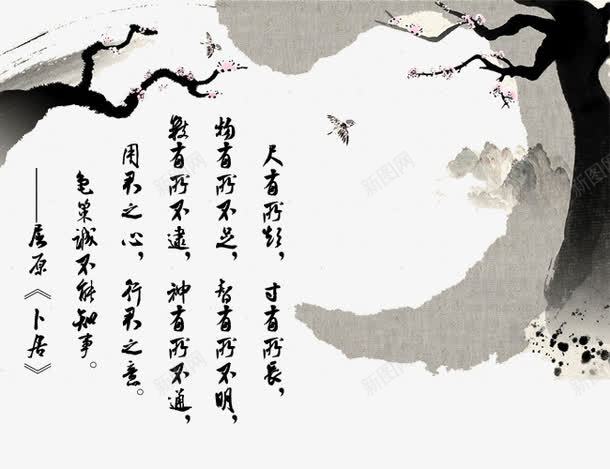 尺有所短，寸有所長，
物有所不足，智有所不明，
数有所不逮，神有所不通，
用君之心，行君之意。
龟策诚不能知事。
——屈原《卜居》
新图网